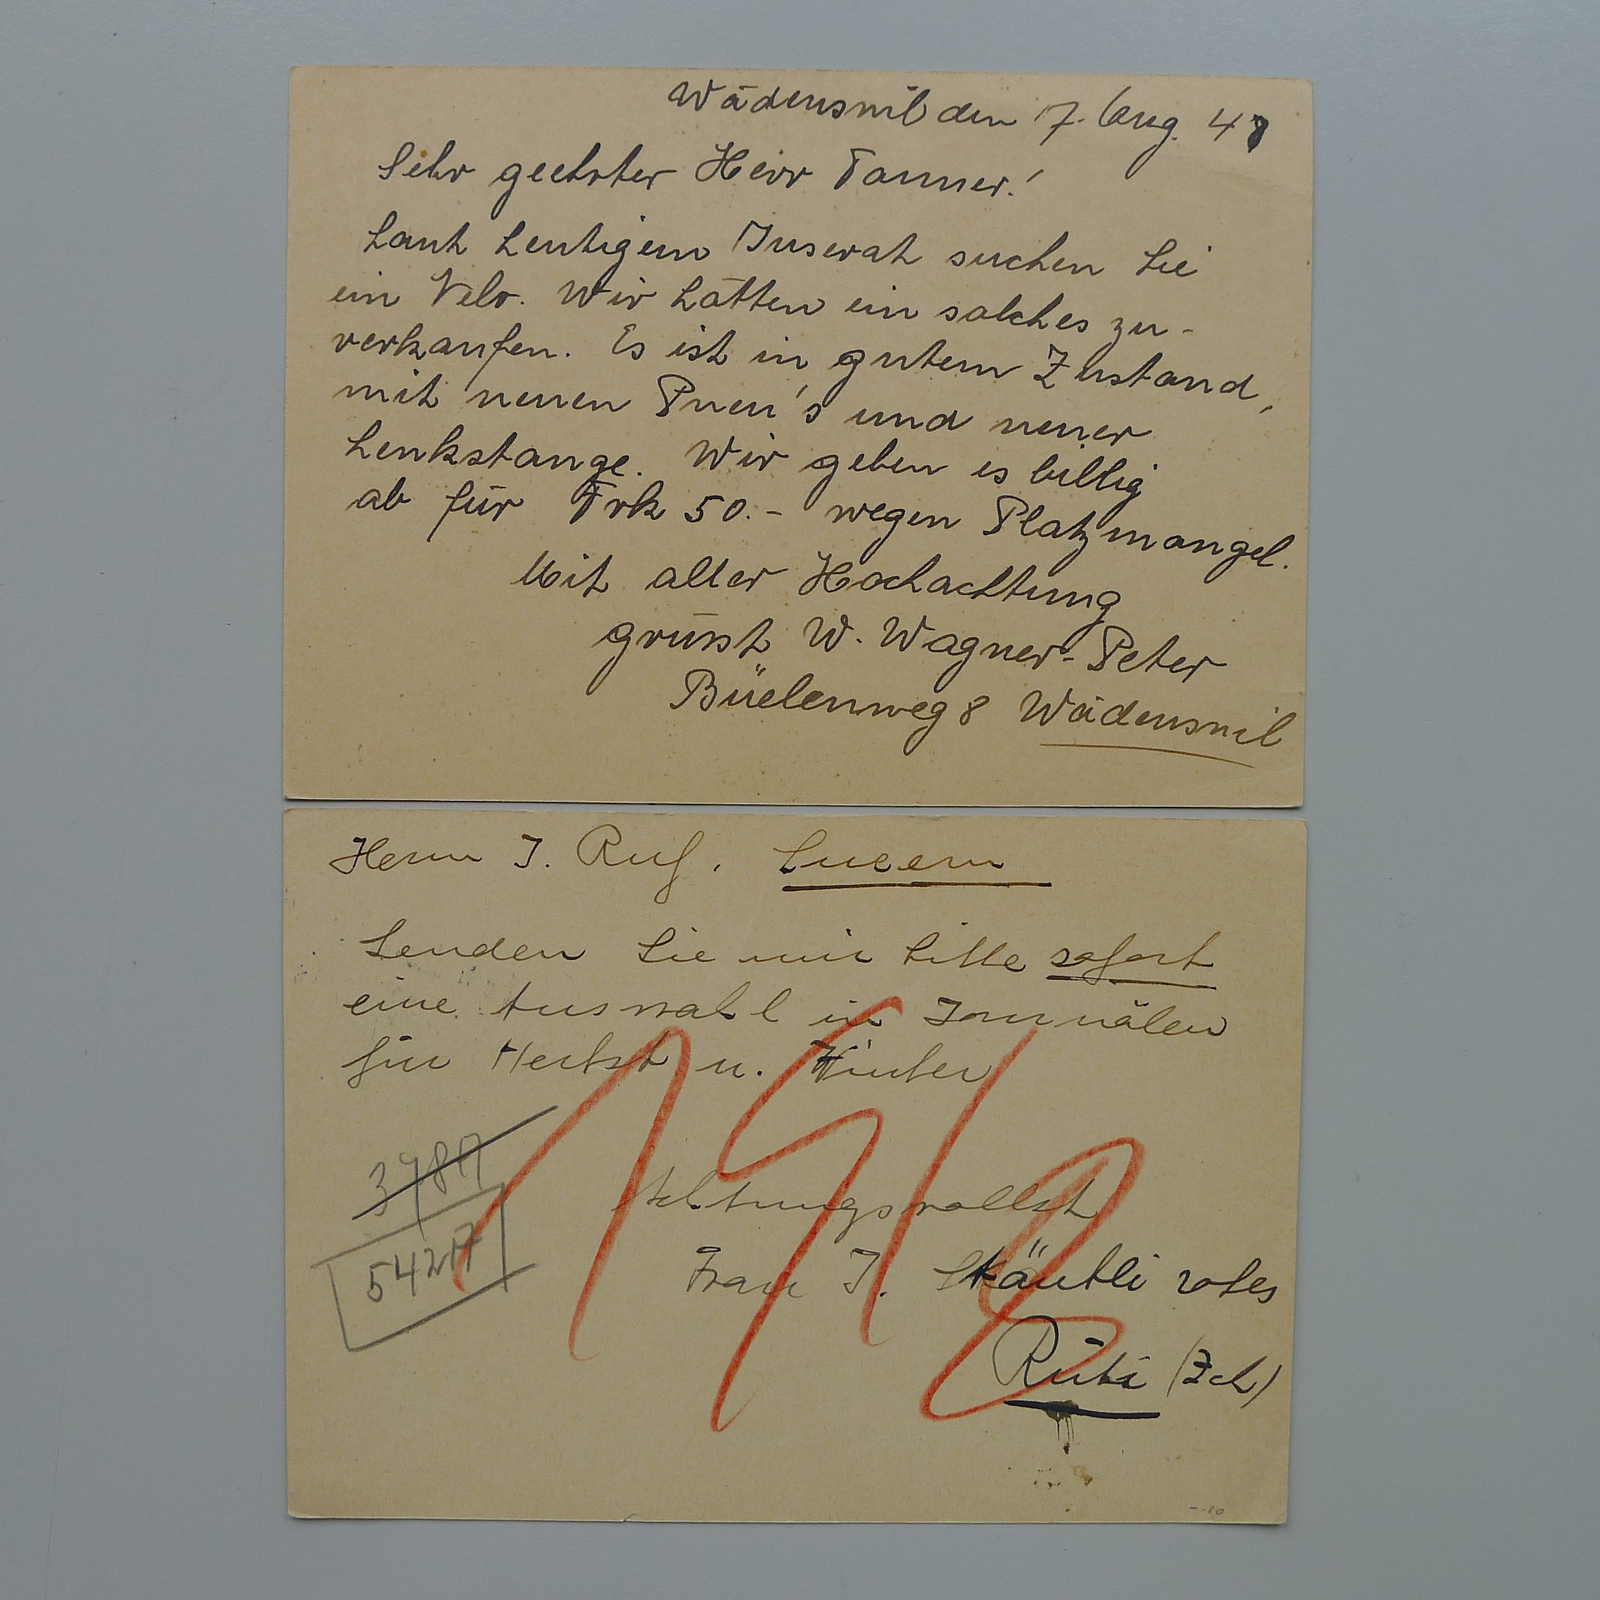 Wädenswil den 7. Aug. 47
Sehr geehrter Herr Tanner!
Laut heutigem Inserat suchen Sie
ein Velo. Wir hätten ein solches zu-
verkaufen. Es ist in gutem Zustand,
mit neuen Pneu's und neuer
Lenkstange. Wir geben es billig
ab für Frk 50.- wegen Platzmangel.
Mit aller Hochachtung
grüsst W. Wagner-Peter
Büelenweg 8 Wädenswil
Herrn J. Ruf. Luzern
Senden Sie mir bitte sofort
eine Auswahl in Journälen
für Herbst u. Winter
Achtungsvollst
Frau J. Stäubli
Rüti (Zch)
5421